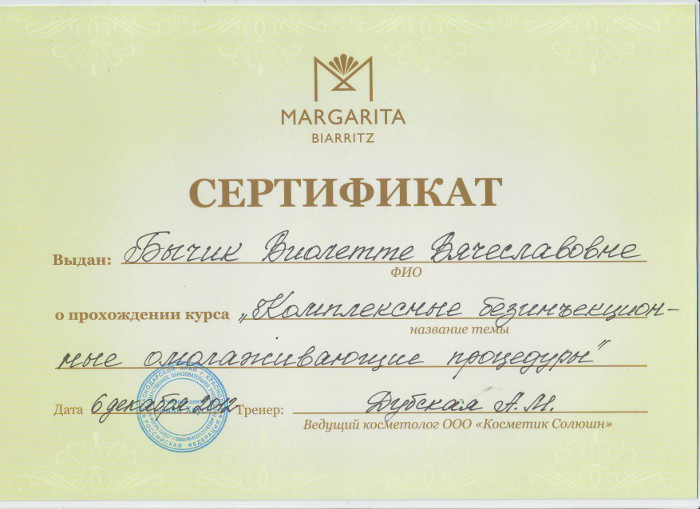 MARGARITA
BIARRITZ
СЕРТИФИКАТ
Выдан: Бычик Виолетте Вячеславовне
ФИО
о прохождении курса „Комплексные безинъекцион-
название темы
ные омолаживающие процедуры"
Дата 6 декабря 2012 Тренер: Дубская А.М.
Ведущий косметолог ООО «Косметик Солюшн»